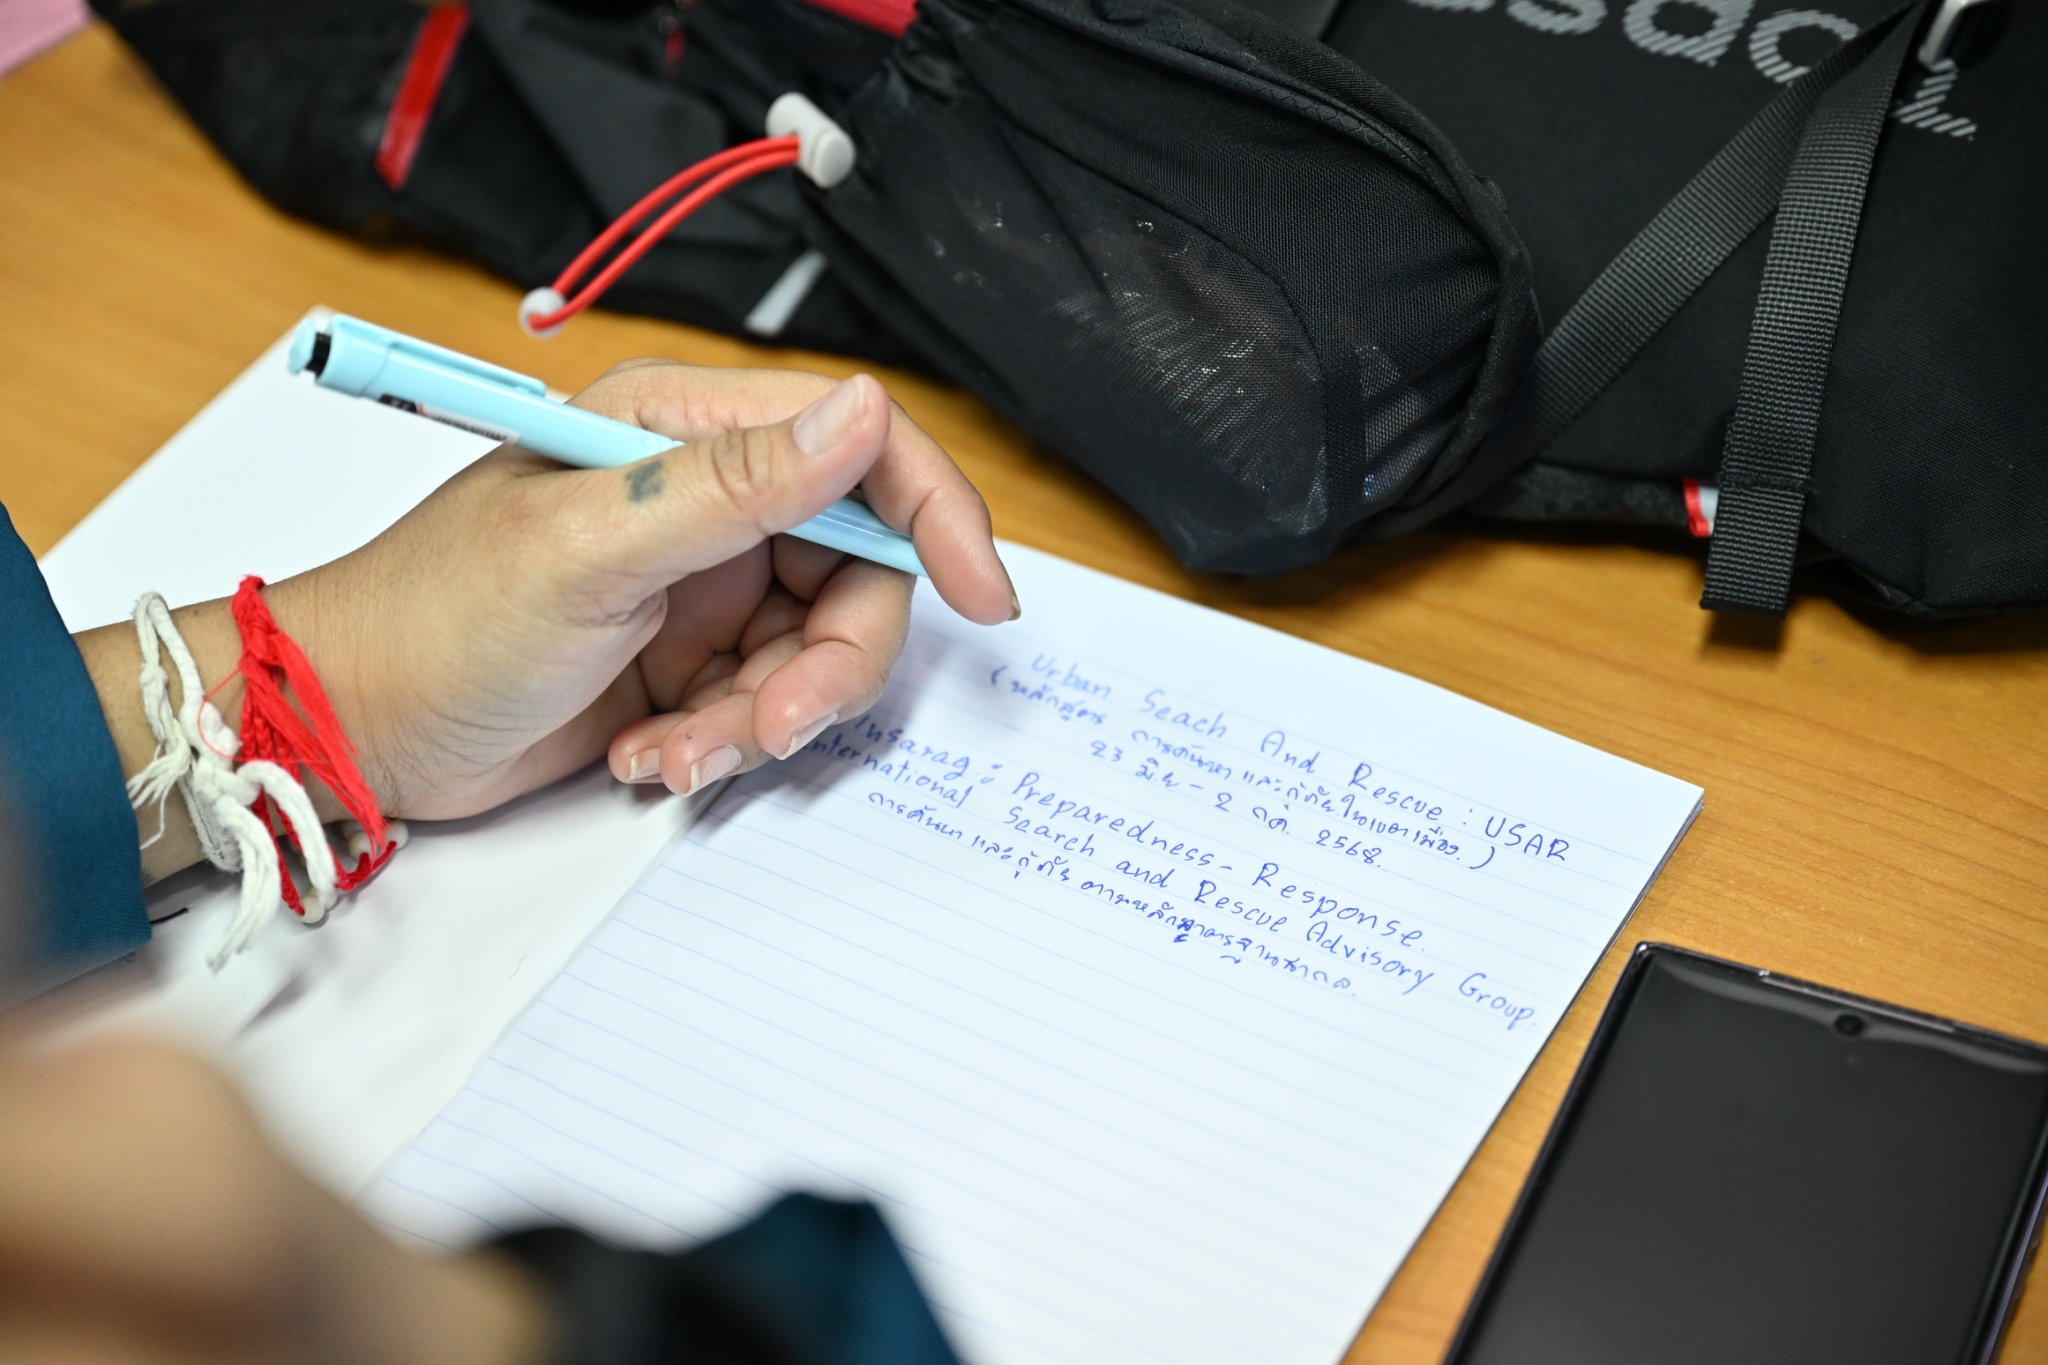 Urban Seach And Rescue : USAR
(หลักสูตร การค้นหา และกู้ภัยในเขตเมือง.)
23 มิ.ย - 2 กค. 2568.
Insarag : Preparedness - Response.
International Search and Rescue Advisory Group.
การค้นหา และกู้ภัย ตามหลักสูตรสากล.